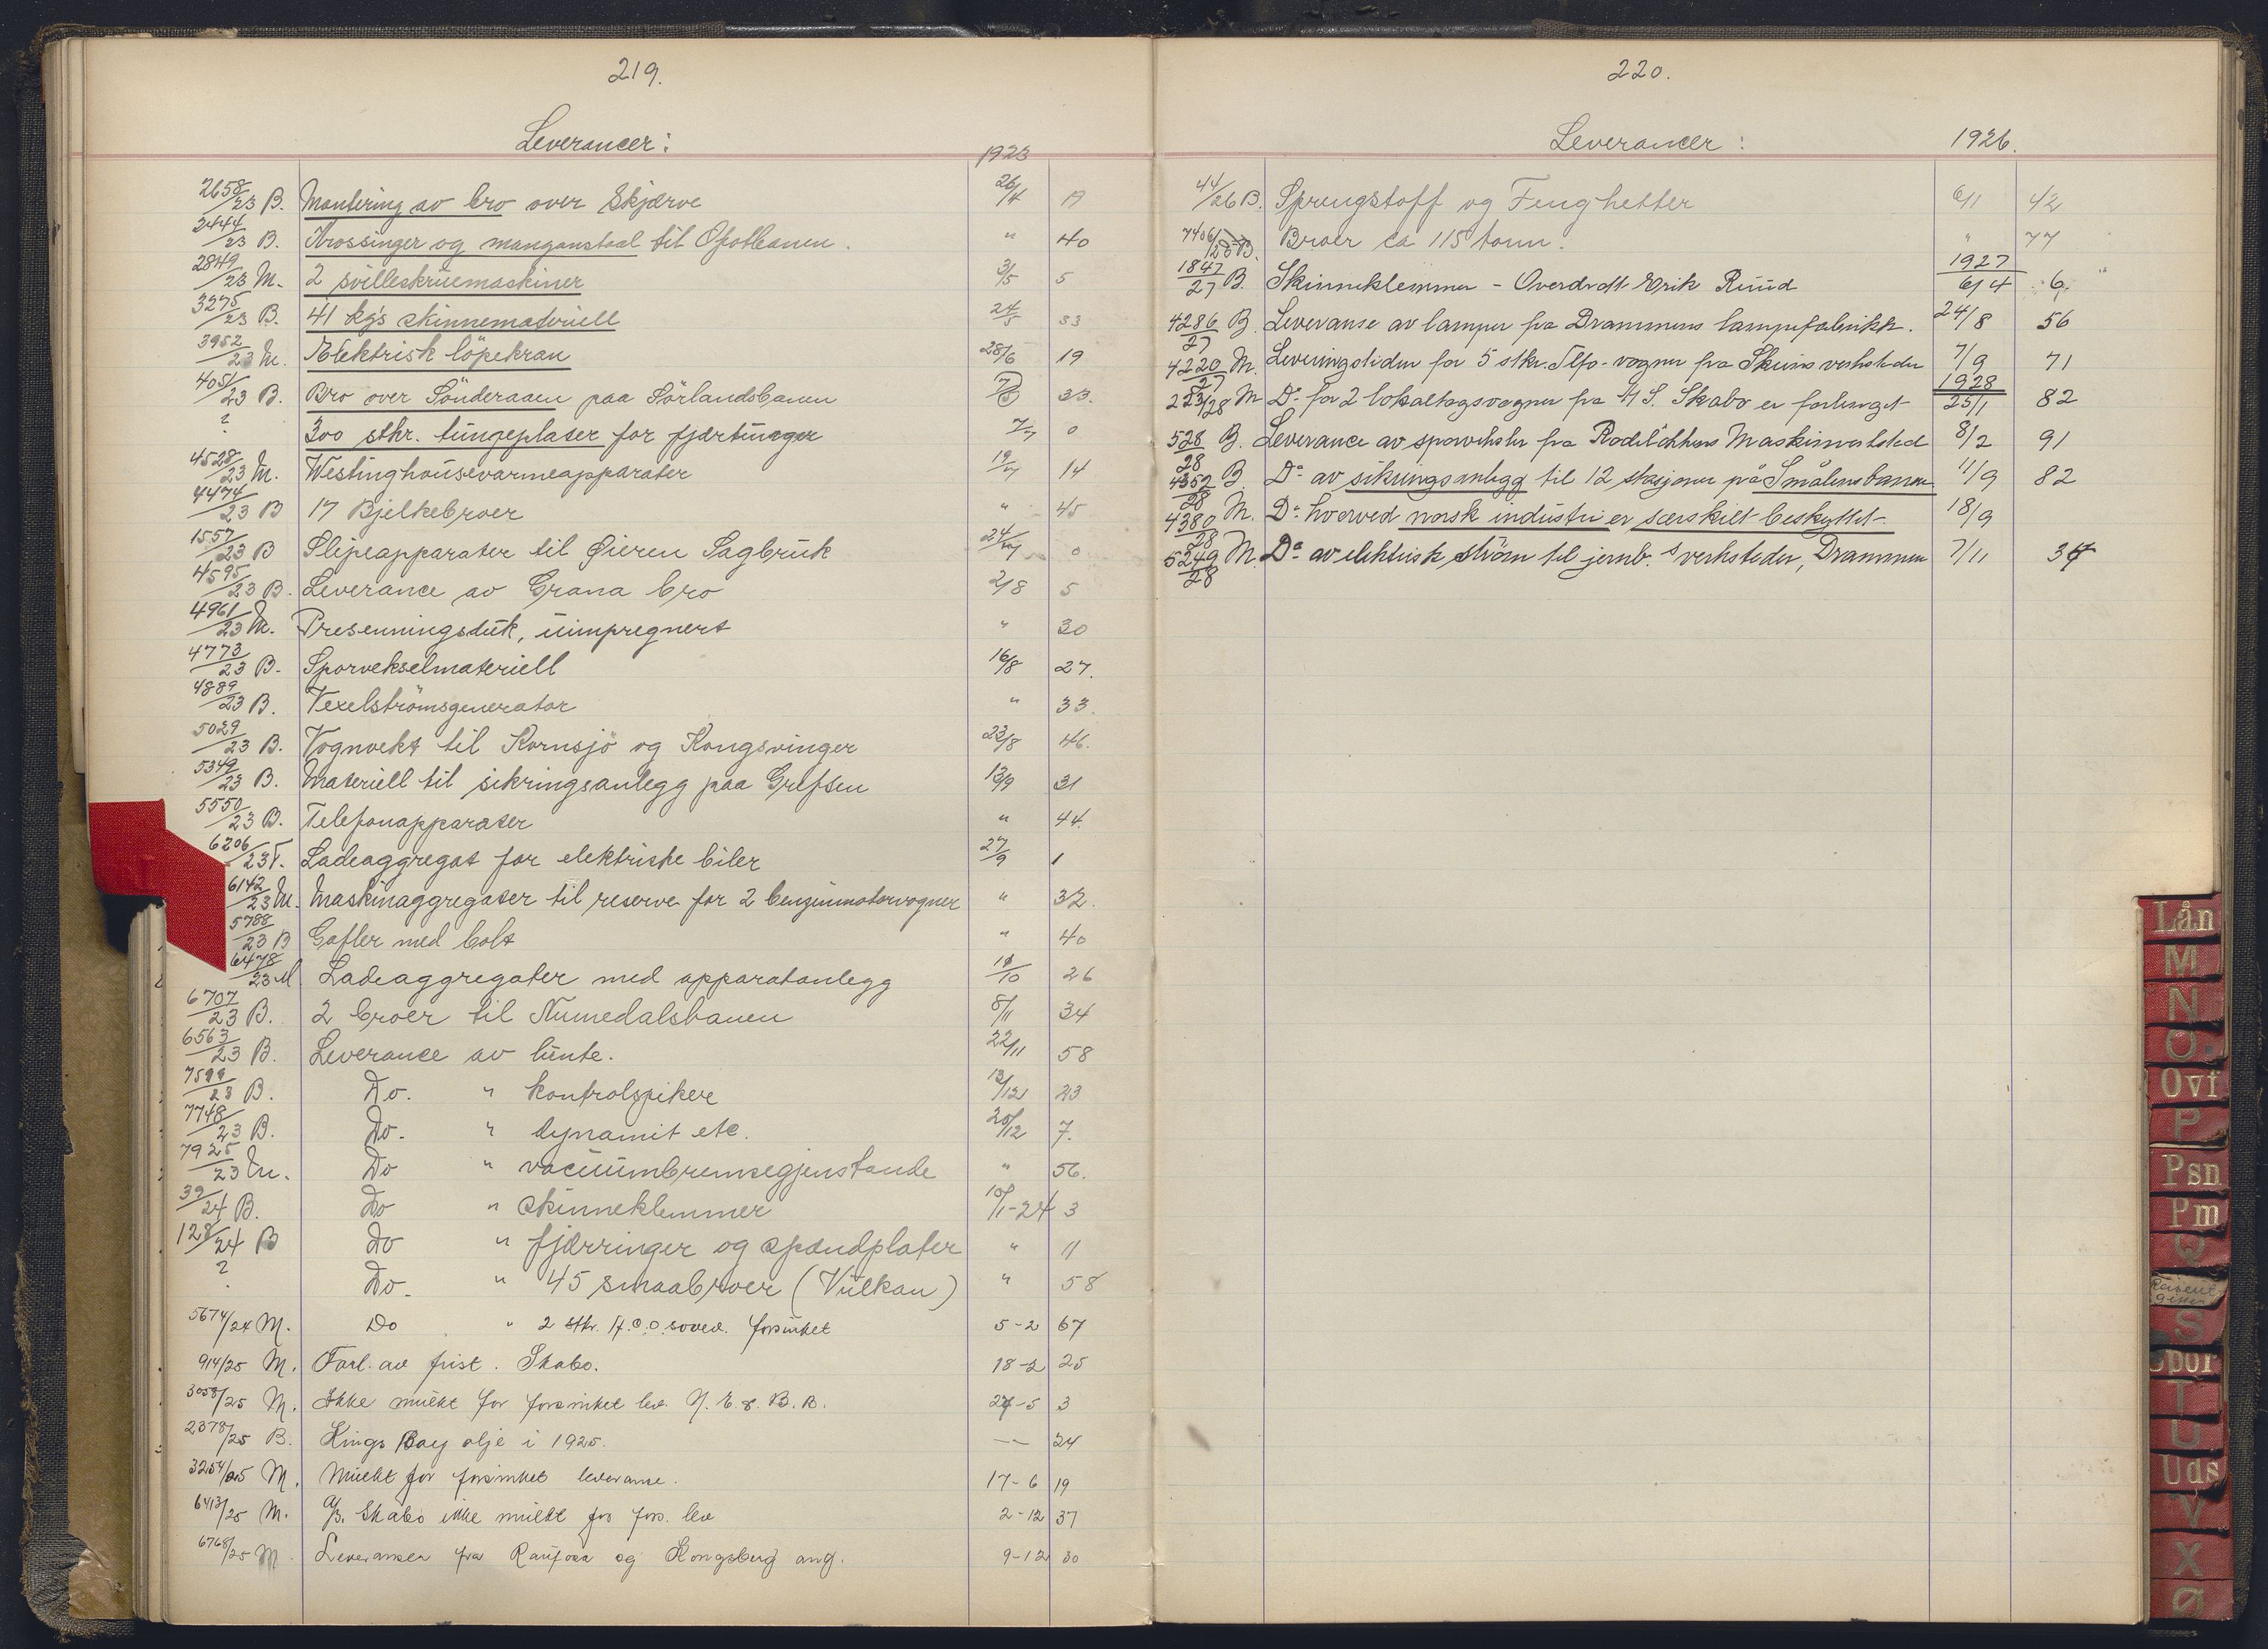 219.
Leverancer:
1923
2658/23 B. Montering av bro over Skjærve 26/4 17
2444/23 B. Krossinger og manganstaal til Ofotbanen. " 40
2849/23 M. 2 svilleskruemaskiner 3/5 5
3275/23 B. 41 kg's skinnemateriell 24/5 33
3952/23 M. Elektrisk löpekran 28/6 19
4051/23 B. Bro over Sönderaaen paa Sörlandsbanen 33.
? 300 stkr. tungeplater for fjærtunger 7/7 0
4528/23 M. Westinghousevarmeapparater 19/7 14
4474/23 B 17 Bjelkebroer " 45
1557/23 B Slipeapparater til Øieren Sagbruk 24/7 0
4595/23 B. Leverance av Grana bro 2/8 5
4961/23 M. Presenningsduk, uimpregnert " 30
4773/23 B. Sporvekselmateriell 16/8 27.
4889/23 B. Vexelströmsgenerator " 33.
5029/23 B. Vognvekt til Kornsjö og Kongsvinger 23/8 46.
5349/23 B. Materiell til sikringsanlegg paa Grefsen 13/9 31
5550/23 B. Telefonapparater " 44.
6206/23 T. Ladeaggregat for elektriske biler 27/9 1
6142/23 M. Maskinaggregater til reserve for 2 benzinmotorvogner " 32.
5788/23 B Gafler med bolt " 40
6478/23 M Ladeaggregater med apparatanlegg 11/10 26
6707/23 B. 2 broer til Numedalsbanen 8/11 34
6563/23 B. Leverance av lunte. 22/11 58
7599/23 B. Do. " kontrolspikere 13/12 23
7748/23 B. Do. " dynamit etc. 20/12 7.
7925/23 M. Do " vacuumbremsegjenstande " 56.
39/24 B. Do " skinneklemmer 10/1-24 3
128/24 B Do " fjærringer og spændplater " 11
? Do. " 45 smaabroer (Vulkan) " 58
5674/24 M. Do " 2 stkr. soved. forsinket 5-2 67
914/25 M. Forl. av frist. Skabo. 18-2 25
3058/25 M. Ikke mulkt for forsinket lev. N. E. & B. B. 27-5 3
2378/25 B. Kings Bay olje i 1925. — 24
3254/25 M. Mulkt for forsinket leveranse. 17-6 19
6413/25 M. A/S. Skabo ikke mulkt for fors. lev 2-12 37
6768/25 M. Leveranser fra Raufoss og Kongsberg ang. 9-12 30
220.
Leverancer: 1926.
44/26 B. Sprengstoff og Fenghetter 6/1 42
7406/25 B. Broer ca 115 tonn. " 77
1927
1847/27 B. Skinneklemmer - Overdratt Erik Ruud 6/4 6
4286/27 B. Leveranse av lamper fra Drammens lampefabrikk. 24/8 56
4220/27 M. Leveringstiden for 5 stkr. Tlfo-vogner fra Skeins verksteder 7/9 71
1928
223/28 M Do for 2 lokaltogsvogner fra A/S. Skabo er forlenget 25/1 82
528/28 B. Leverance av sporveksler fra Rodelökkens Maskinverksted 8/2 91
4352/28 B. Do av sikringsanlegg til 12 stasjoner på Smålensbanen. 11/9 82
4380/28 M. Do hvorved norsk industri er særskilt beskyttet 18/9
5249/28 M. Do av elektrisk ström til jernb.s verksteder, Drammen 7/11 34
Lån
M
N
O
Ovf
P
Psn
Pm
Q
S
Spor
T
U
Uds
V
X
Ø